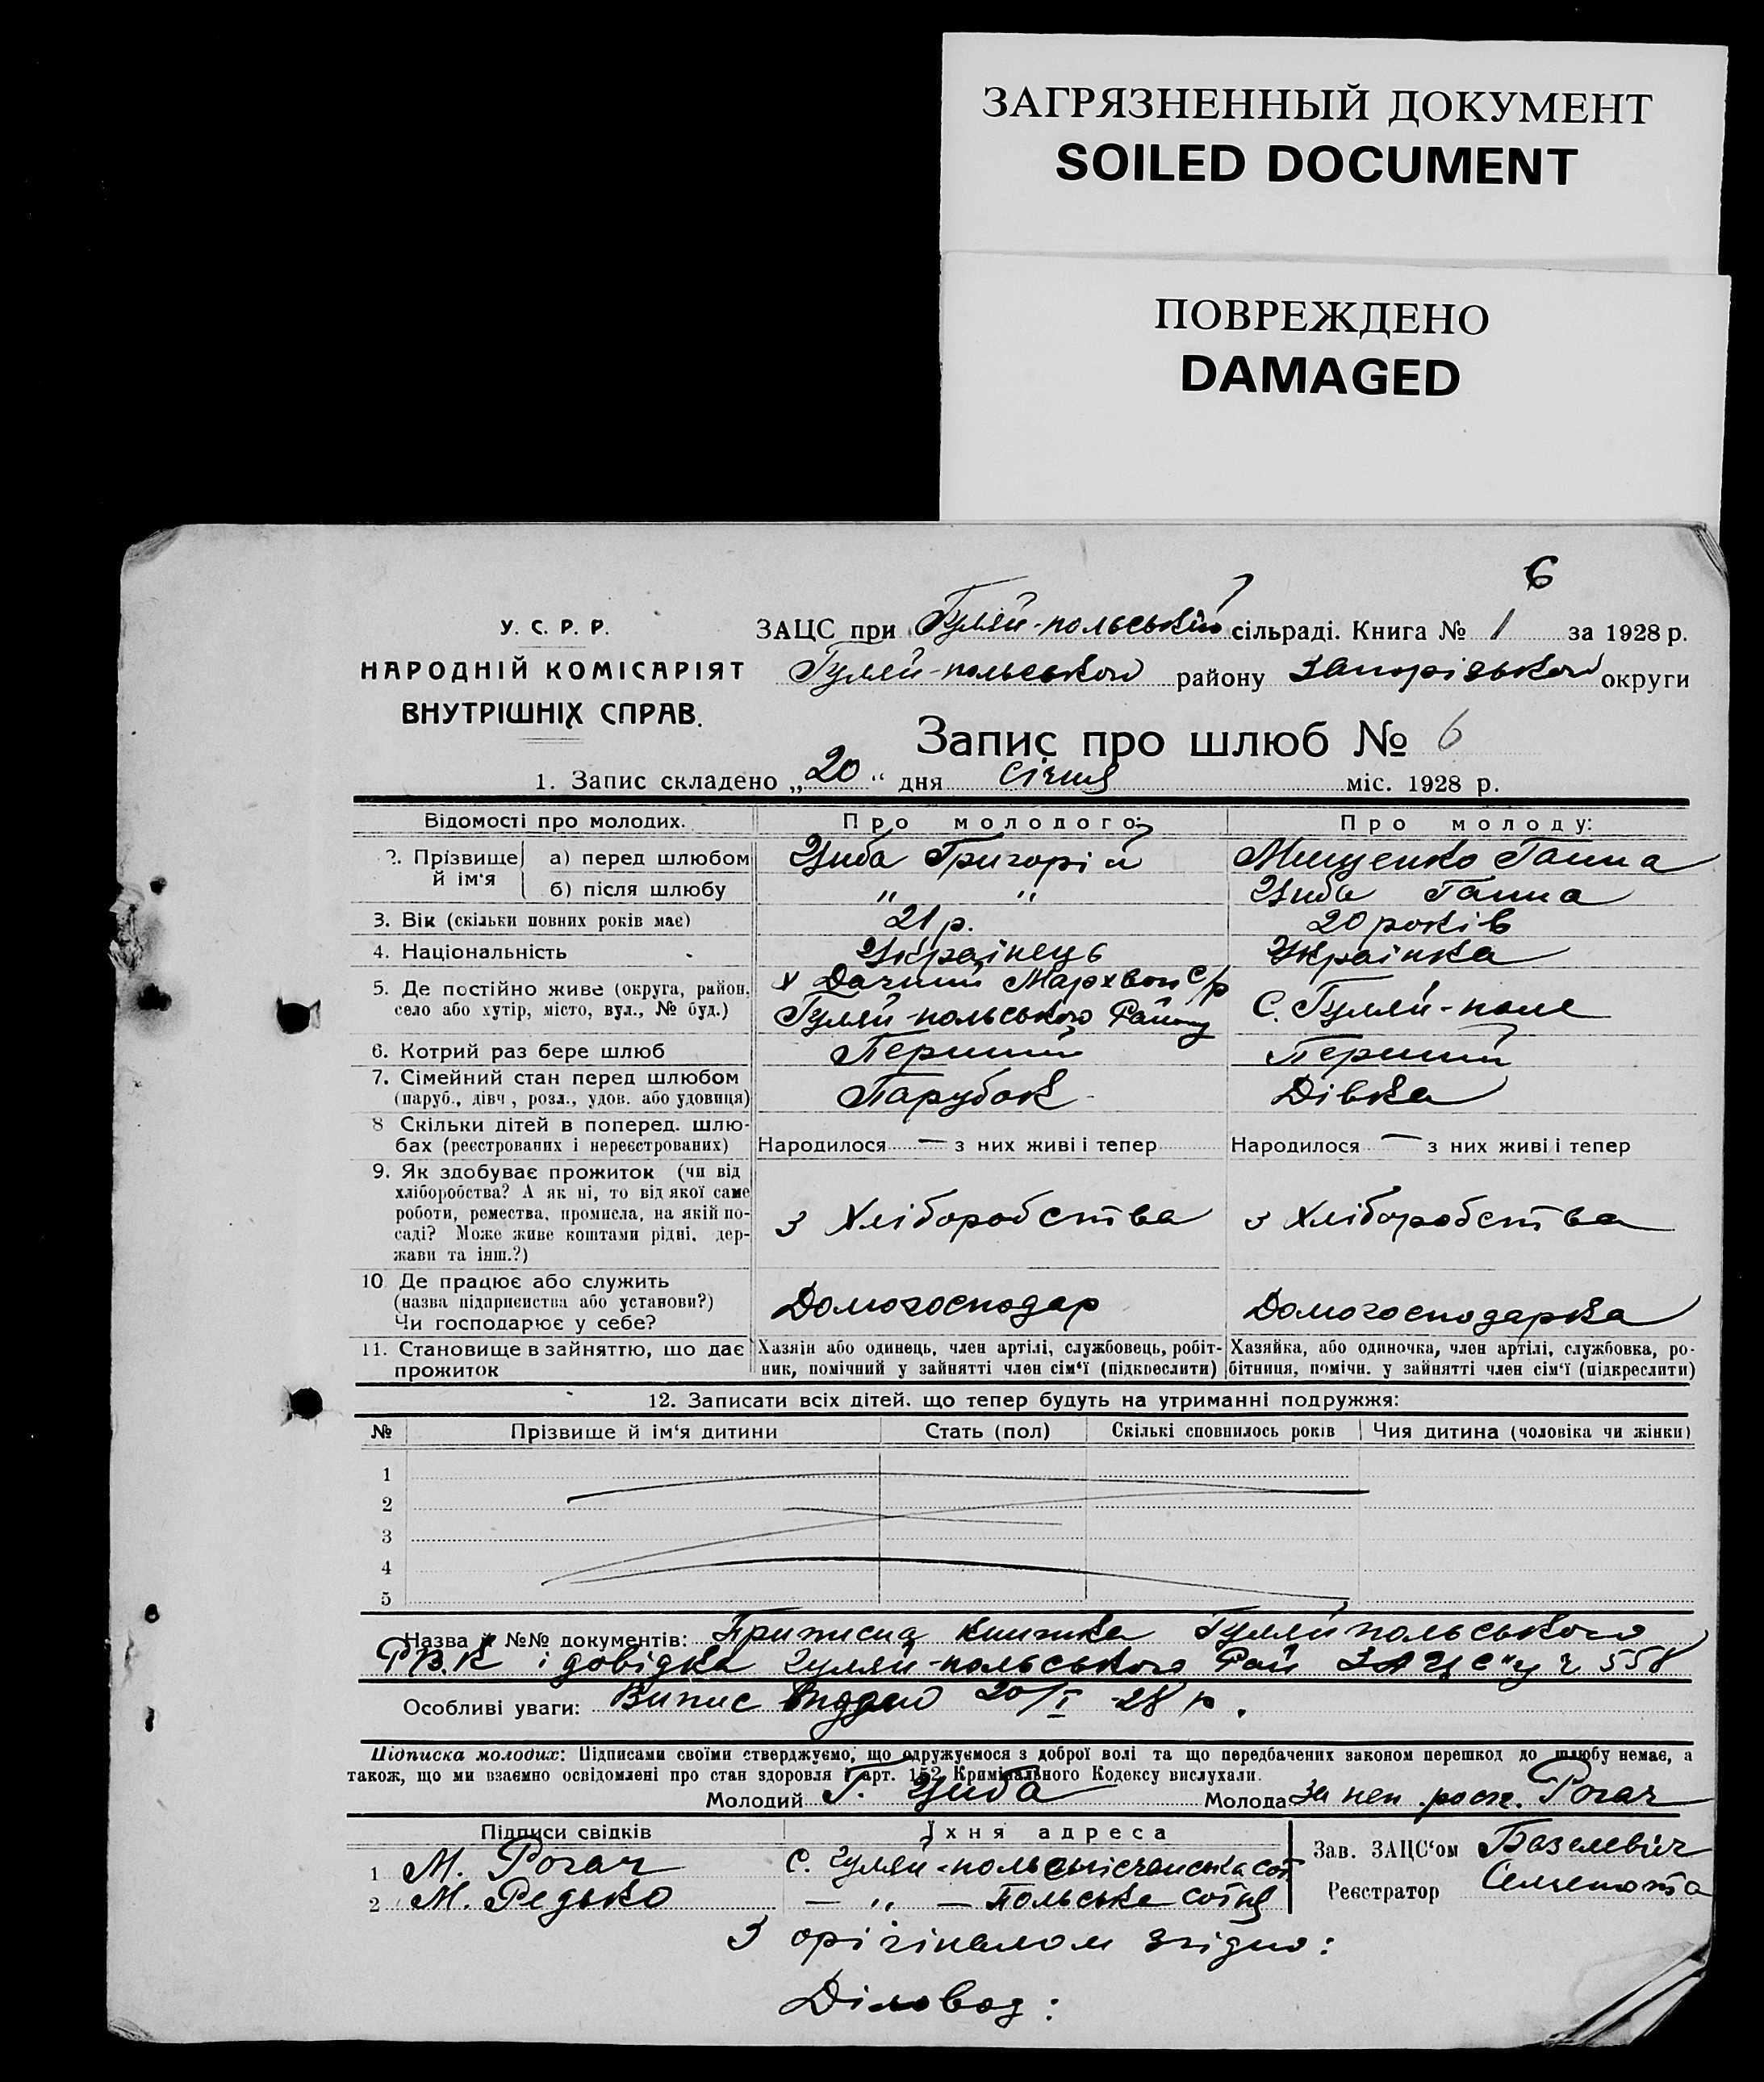 ЗАГРЯЗНЕННЫЙ ДОКУМЕНТ
SOILED DOCUMENT
ПОВРЕЖДЕНО
DAMAGED
6
У. С. Р. Р.
НАРОДНІЙ КОМІСАРІЯТ
ВНУТРІШНІХ СПРАВ.
ЗАЦС при Гуляй-польській сільраді. Книга № 1 за 1928 р.
Гуляй-польського району Запорізької округи
Запис про шлюб № 6
1. Запис складено „20“ дня січня міс. 1928 р.
Відомості про молодих. Про молодого: Про молоду:
2. Прізвище й ім‘я а) перед шлюбом Циба Григорій Мищенко Ганна
б) після шлюбу " " Циба Ганна
3. Вік (скільки повних років має) 21 р. 20 років
4. Національність Українець Українка
5. Де постійно живе (округа, район, село або хутір, місто, вул., № буд.) х Дачний Мархвоп с/р Гуляй-польського Району С. Гуляй-поле
6. Котрий раз бере шлюб Перший Перший
7. Сімейний стан перед шлюбом (паруб., дівч., розл., удов. або удовиця) Парубок Дівка
8 Скільки дітей в поперед. шлюбах (реєстрованих і нереєстрованих) Народилося — з них живі і тепер Народилося — з них живі і тепер
9. Як здобуває прожиток (чи від хліборобства? А як ні, то від якої саме роботи, ремества, промисла, на якій посаді? Може живе коштами рідні, держави та інш.?) з Хліборобства з Хліборобства
10 Де працює або служить (назва підприємства або установи?) Чи господарює у себе? Домогосподар Домогосподарка
11. Становище в зайняттю, що дає прожиток Хазяїн або одинець, член артілі, службовець, робітник, помічний у зайнятті член сім‘ї (підкреслити) Хазяйка, або одиночка, член артілі, службовка, робітниця, помічн. у зайнятті член сім‘ї (підкреслити)
12. Записати всіх дітей, що тепер будуть на утриманні подружжя:
№ Прізвище й ім‘я дитини Стать (пол) Скількі сповнилось років Чия дитина (чоловіка чи жінки)
1
2
3
4
5
Назва й №№ документів: Приписна книжка Гуляйпольського
РВ.К і довідка Гуляй-польського Рай ЗАЦС"у ч 558
Особливі уваги: Випис видано 20/I -28 р.
Підписка молодих: Підписами своїми стверджуємо, що одружуємося з доброї волі та що передбачених законом перешкод до шлюбу немає, а
також, що ми взаємно освідомлені про стан здоровля і арт. 152 Кримінального Кодексу вислухали.
Молодий Г. Циба Молода За неп. росп. Рогач
Підписи свідків Їхня адреса
1 М. Рогач С. Гуляй-поле сот
2 М. Редько — " — Польська сотня
Зав. ЗАЦС‘ом Базилевіч
Реєстратор
З орігіналом згідно:
Діловод: